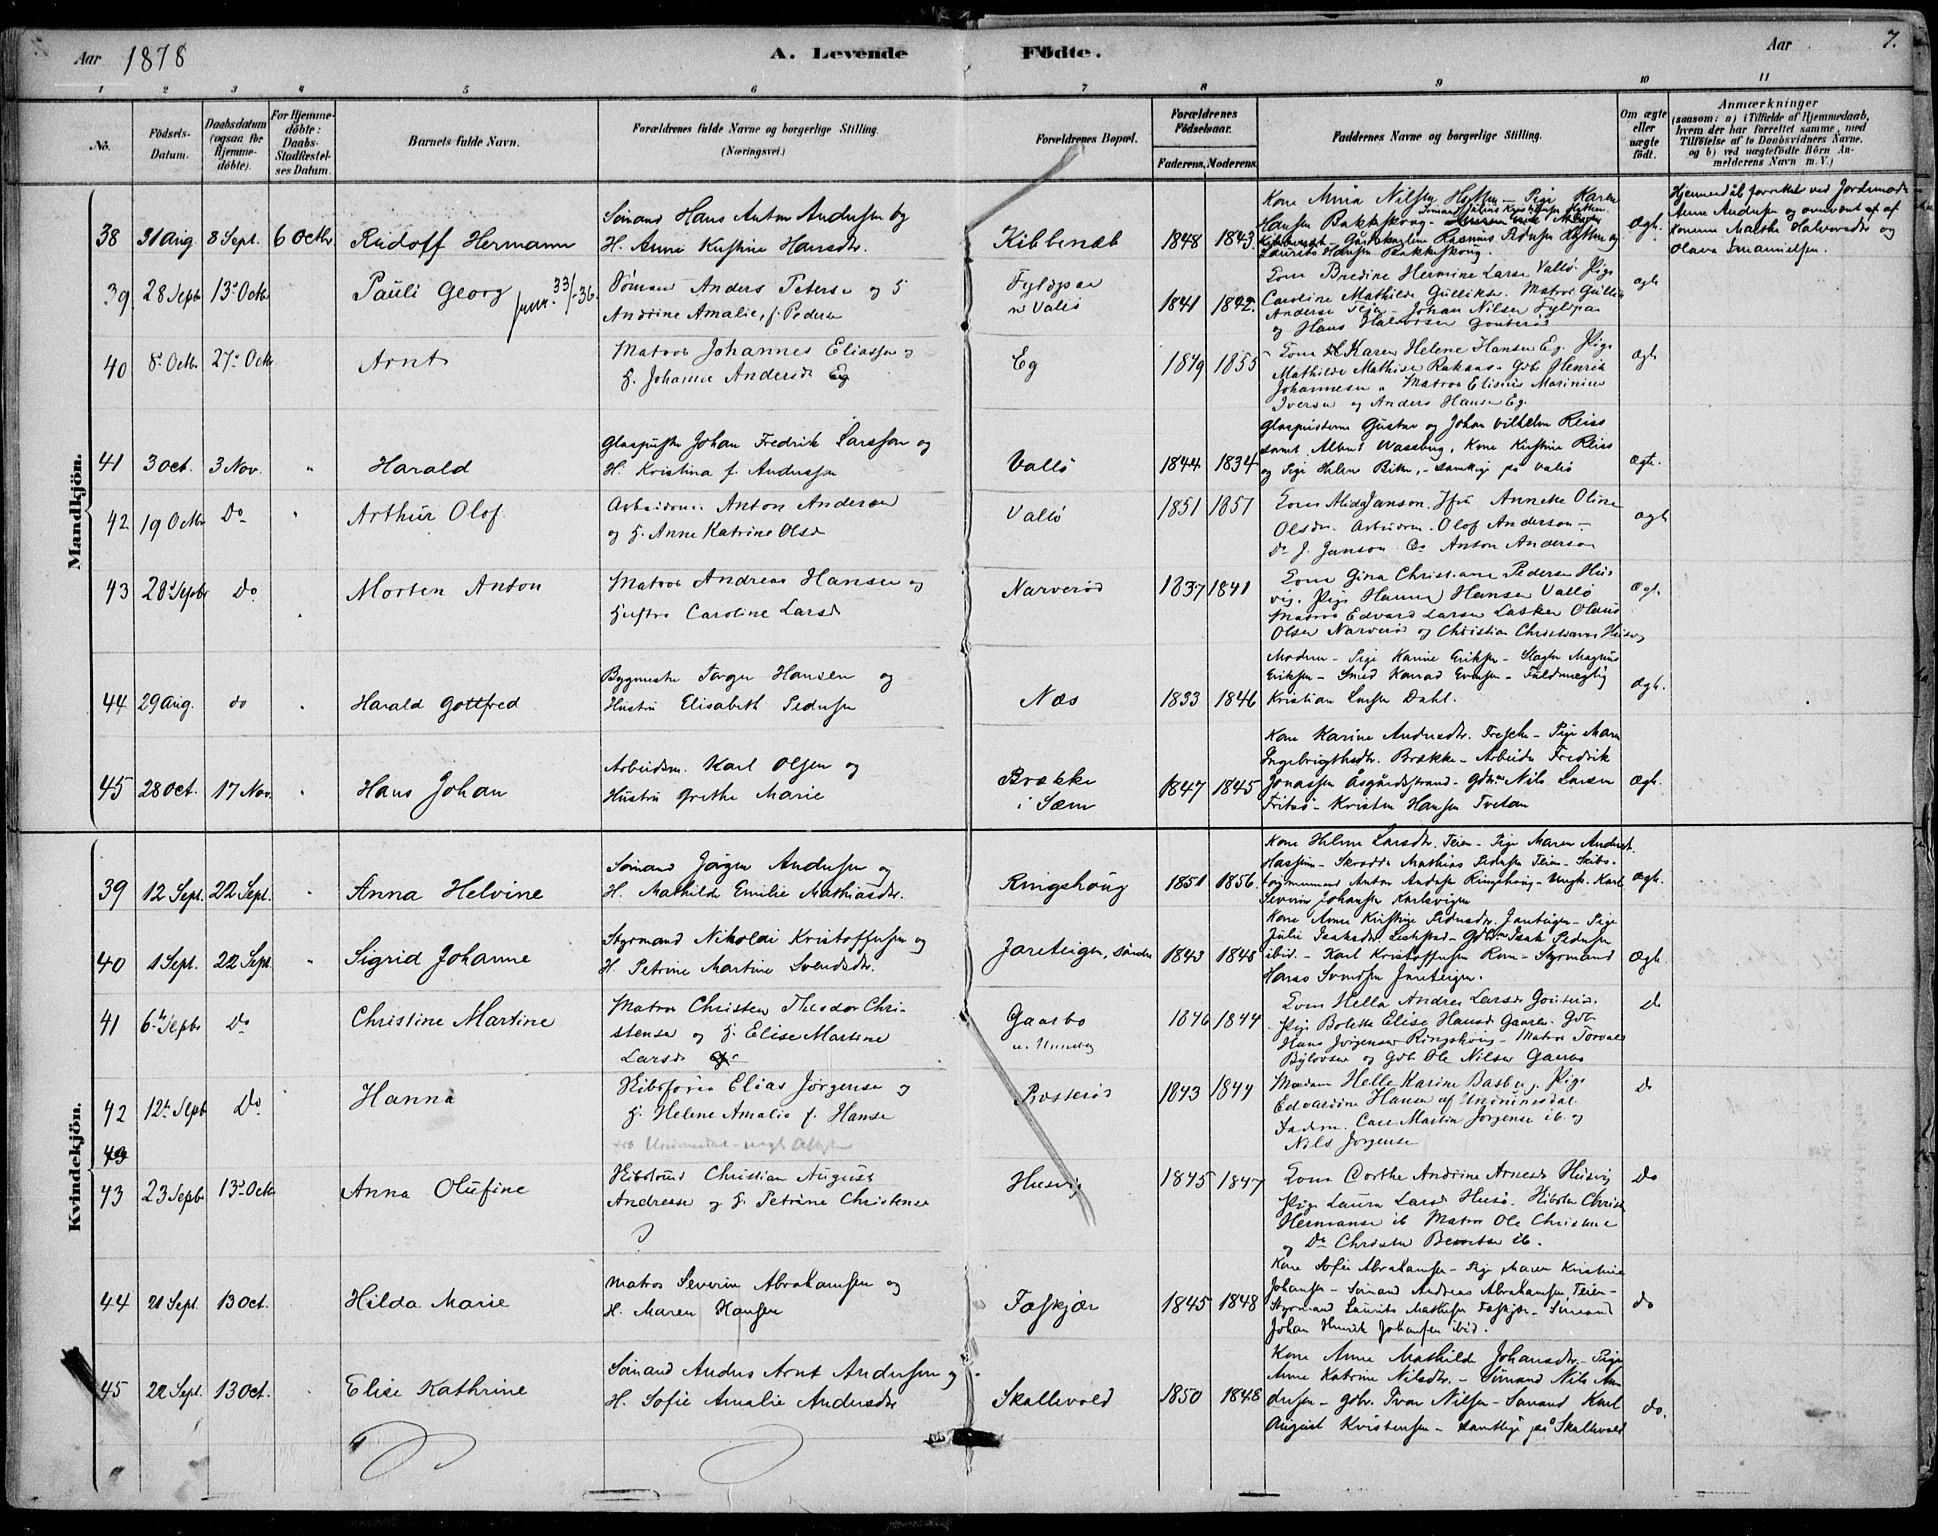 Aar 1878 A. Levende Födte. Aar 7.
1 2 3 4 5 6 7 8 9 10 11
No.
Födsels-Datum.
Daabsdatum (ogsaa for Hjemme-döbte).
For Hjemme-döbte: Daabs-Stadfæstel-ses Datum.
Barnets fulde Navn.
Forældrenes fulde Navne og borgerlige Stilling. (Næringsvei.)
Forældrenes Bopæl.
Forældrenes Födselsaar.
Faderens. Moderens.
Faddernes Navne og borgerlige Stilling.
Om ægte eller uægte födt.
Anmærkninger
(saasom: a) i Tilfælde af Hjemmedaab,
hvem der har forrettet samme, med
Tilföielse af to Daabsvidners Navne.
og b) ved uægtefödte Börn An-
melderens Navn m. V.)
Mandkjön.
38 31 Aug. 8 Sept. 6 Octbr Rudolf Hermann
Sömand Hans Anton Andersen og
H. Anne Kristine Hansdtr.
Kibbenæb 1848 1843 Ægt.
Hjemmedåb forrettet ved Jordemoder
Anne Andersen og overværet af
Konerne Marthe Halvorsdtr og
Olava Emanuelsen.
39 28 Septb 13 Octb Pauli Georg 33/-36.
Sömand Anders Peterse og H
Andrine Amalie, f. Pederse
Vallö 1841 1842. ægt
Kone Bredine Hermine Larse Vallö. Pige
Caroline Mathilde
Johan Nilsen
og Hans Halvorsen
40 8 Octbr 27 Octb Arnt
Matros Johannes Eliassen og
H. Johanne Andersdt Eg
Eg 1849 1855 Ægt
Karen Helene Hansen Eg. Pige
Mathilde Mathise Gdb Henrik
Johannesen Matros Marinius
Iversen og Anders Hansen Eg.
41 3 Oct. 3 Nov. " Harald
Glaspuster Johan Fredrik Larsson og
H. Kristina f. Andersen
Vallö 1844 1834 Ægte.
Glaspusterne Gustav og Johan Vilhelm Reiss
samt Albert Wassberg, Kone Kirstine Reiss
og Pige Helene, samtlige på Vallö
42 19 Octbr Do " Arthur Olof
Arbeidsm. Anton Anderse
og H. Anne Katrine Olsd
Vallö 1851 1857 ægt
Janson. Jfr Annette Oline
Olsdtr. Arbeidsm. Olof Anderson –
Do J. Janson Do Anton Anderson
43 28 Septbr Do " Morten Anton
Matros Andreas Hanse og
Hustru Caroline Larsd
Narverød 1837 1841 Ægt.
Kone Gina Christiane Pederse Hus
vig. Pige Hanne Hansen Vallö
Matros Edvard Larsen Olaus
Olsen Narverød og Christian Christianse Husvig
44 29 Aug. do " Harald Gottfred
Bygmester Torger Hansen og
Hustru Elisabeth Pedersen
Næs 1833 1846 Ægt.
Moderen – Pige Karine Eriksen – Slagter Magnus
Eriksen – Smed Konrad Evensen – Fuldmægtig
Kristian Larsen Dahl.
45 28 Oct. 17 Nov. " Hans Johan
Arbeidsm. Karl Olsen og
Hustru Grethe Marie
Brække
i Sæm
1847 1845 Ægt.
Kone Karine Andersdtr. Freste – Pige Maren
Ingebrigthsdtr. Brække – Arbeider Fredrik
Jonassen Åsgårdstrand – Gdbr Nils Larsen
Fritsö – Kristen Hansen Tvetan
Kvindekjön.
39 12 Sept. 22 Sept. " Anna Helvine
Sömand Jörgen Andersen og
H. Mathilde Emilie Mathiasdtr.
Ringshoug 1851 1856. Ægt.
Kone Helene Larsdtr. Teien – Pige Maren Andersdt.
Skrædder Mathias Pedersen Teien – Skibs-
tømmermand Anton Andersen Ringshoug – Ungk. Karl
Severin Johansen Karlsvigen
40 1 Sept. 22 Sept " Sigrid Johanne
Styrmand Nikolai Kristoffersen og
H. Petrine Martine Svendsdtr.
Jareteigen, Söndre 1843 1848 Ægt.
Kone Anne Kirstine Pedersdtr. Jareteigen – Pige
Julie Isaksdtr. – Gdbr Isak Pedersen
ibid. – Karl Kristoffersen Rom – Styrmand
Hans Svendsen Jareteigen.
41 6 Septb Do Christine Martine
Matros Christen Theodor Chri-
stense og H. Elise Martine
Larsdt
Gaarbo 1846 1844 Do
Kone Hella Andrea Larsd
Pige Bolette Elise Hansd Gaaren. Gdb
Hans Jörgensen Ringshoug – Matros Torvald
og Gdb Ole Nilsen Gaarbo
42 12 Septb Do. Hanna
Skibsförer Elias Jörgense og
H. Helene Amalie f. Hanse
Basterød 1843 1844 Do
Madam Helle Karine Basberg, Pige
Edvardine Hansen af Undrumsdal.
Faderen. Carl Martin Jörgense ib. og
Nils Jörgense
43
43 23 Septb 13 Octb Anna Olufine
Skibstömd Christian August
Andresse og H. Petrine Christense
Husvig 1845 1847 Do
Kone Dorthe Andrine Arnesd Husvig
Pige Laura Larsd Husö.
Hermanse ib Matros Ole Christense
og Do Christen Berntse ib.
44 21 Sept. 13 Oct. Hilda Marie
Matros Severin Abrahamsen og
H. Maren Hansen
Faskjær 1845 1848 do
Kone Sofie Abrahamsen – Pige Maren Kristine
Johansen – Sömand Andreas Abrahamsen, Teien –
Styrmand Laurits Mathisen Faskjær – Sömand
Johan Henrik Johansen ibid.
45 22 Sept. 13 Oct. " Elise Kathrine
Sömand Anders Arnt Andersen og
H. Sofie Amalie Andersdtr
Skallevold 1850 1848 do.
Kone Anne Mathilde Johansdtr – Pige
Anne Katrine Nilsdtr. – Sömand Nils An-
dersen – gdbr. Ivar Nilsen – Sömand Karl
August Kristensen – samtlige på Skallevold